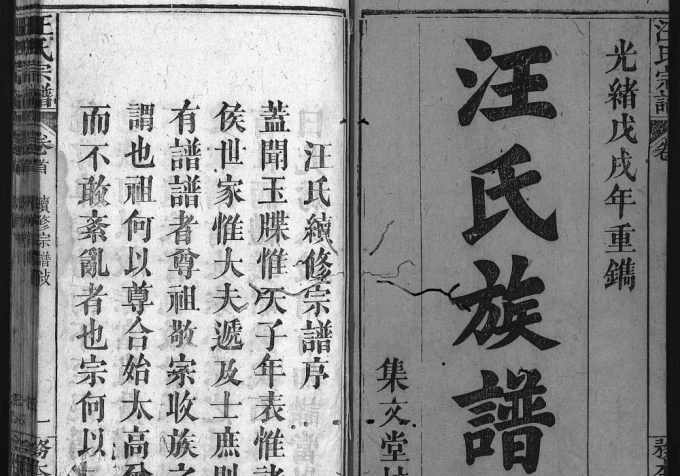 光緒戊戌年重鐫
汪氏族譜
集文堂
汪氏宗譜
卷首
續修宗譜敍
一
汪氏續修宗譜序
蓋聞玉牒惟天子年表惟諸
侯世家惟大夫遞及士庶則
有譜譜者尊祖敬宗收族之
謂也祖何以尊合始太高
而不敢紊亂者也宗何以